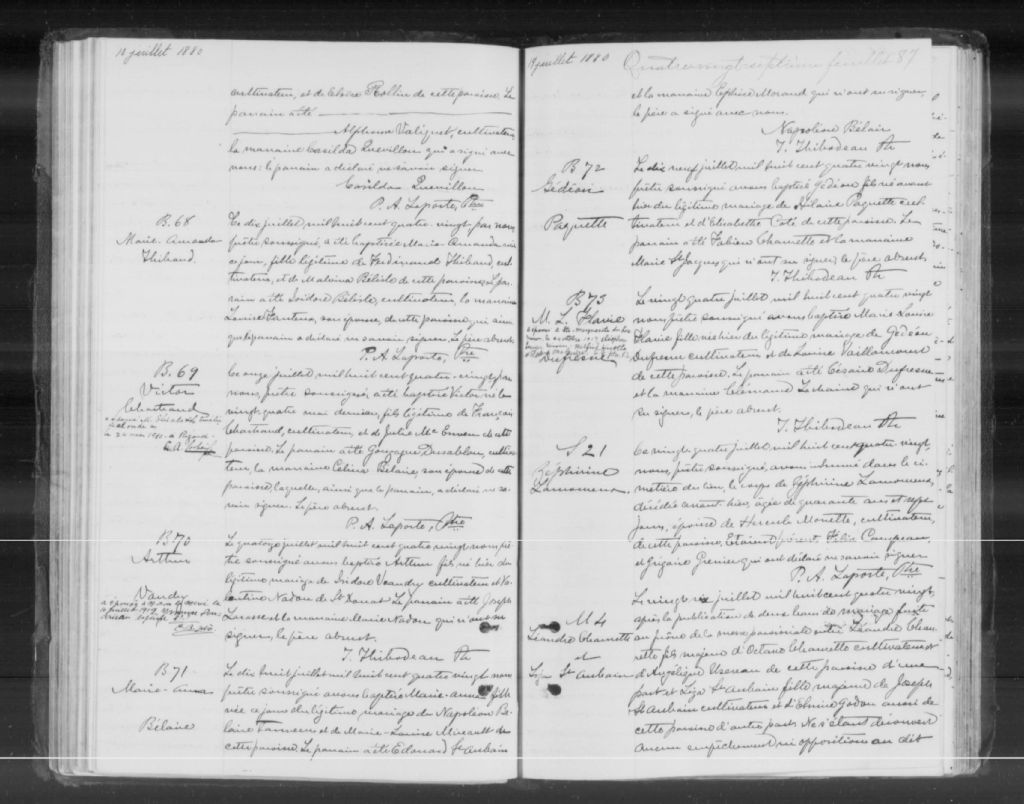 10 juillet 1880
cultivateur, et de Elvire Rollin de cette paroisse. Le
parrain a été
Alphonse Valiquet, cultivateur
la marraine Casilda Quevillon qui a signé avec
nous: le parrain a déclaré ne savoir signer
Casildan Quevillon
P. A. Laporte, Ptre
B. 68
Marie Amanda
Thibaud.
Le dix juillet, mil huit cent quatre-vingt, par nous
prêtre soussigné, a été baptisée Marie Amanda née
ce jour, fille légitime de Ferdinand Thibaud, cul
tivateur, et de Malvina Bélisle de cette paroisse. Le par
rain a été Isidore Bélisle, cultivateur, la marraine
Louise son épouse, de cette paroisse qui ainsi
que le parrain a déclaré ne savoir signer. Le père absent.
P. A. Laporte, Ptre
B. 69
Victor
Chartrand
Ce onze juillet, mil huit cent quatre-vingt, par
nous, prêtre soussigné, a été baptisé Victor né le
vingt quatre mai dernier, fils légitime de François
Chartrand, cultivateur, et de Julie Mc de cette
paroisse. Le parrain a été Gonzague Desablon, cultiva
teur, la marraine Célina Bélaire, son épouse de cette
paroisse laquelle, ainsi que le parrain, a déclaré ne sa
voir signer. Le père absent.
P. A. Laporte, Ptre
B 70
Arthur
Vaudry
Le quatorze juillet mil huit cent quatre vingt nous prê
tre soussigné avons baptisé Arthur fils né hier du
légitime mariage de Isidore Vaudry cultivateur et
Nadon de St Donat. Le parrain a été Joseph
et la marraine Marie Nadon qui n'ont su
signer, le père absent.
T. Thibodeau Ptr
B 71
Marie-Anna
Bélaire
Le dix huit juillet mil huit cent quatre vingt nous
prêtre soussigné avons baptisé Marie-Anna fille
née ce jour du légitime mariage de Napoléon Bé
laire et de Marie-Louise de
cette paroisse. Le parrain a été Edouard St Aubain
19 juillet 1880
Quatrevingt septième feuillet 87
et la marraine Morand qui n'ont su signer,
le père a signé avec nous.
Napoléon Bélair
T. Thibodeau Ptr
B 72
Gédéon
Paquette
Le dix neuf juillet, mil huit cent quatre vingt nous
prêtre soussigné avons baptisé Gédéon fils né avant
hier du légitime mariage de Hilaire Paquette cul
tivateur et d'Elisabeth Coté de cette paroisse. Le
parrain a été Fabien Charrette et la marraine
Marie St Jacques qui n'ont su signer, le père absent.
T. Thibodeau Ptr
B 73
M. L. Flavie
Dufresne
Le vingt quatre juillet mil huit cent quatre vingt
nous prêtre soussigné avons baptisé Marie Louise
Flavie fille née hier du légitime mariage de Gédéon
Dufresne cultivateur et de Louise Vaillancourt
de cette paroisse. Le parrain a été Césaire Dufresne
et la marraine Clémence Lachaine qui n'ont
su signer, le père absent.
T. Thibodeau Ptr
S 21
Zéphirine
Lamoureux.
Ce vingt quatre juillet, mil huit cent quatre vingt,
nous, prêtre soussigné, avons inhumé dans le ci-
metière du lieu, le corps de Zéphirine Lamoureux,
décédée avant hier, âgée de quarante ans et sept
jours, épouse de Hercule Monette, cultivateur,
de cette paroisse. Etaient présents Félix Campeau,
et Grenier qui ont déclaré ne savoir signer
P. A. Laporte, Ptre
M 4
Léandre Charrette
et
Liza St Aubain
Le vingt six juillet mil huit cent quatre vingt,
après la publication de deux bans de mariage faite
au prône de la messe paroissiale entre Léandre Char
rette fils majeur d'Octave Charrette cultivateur et
d'Angélique de cette paroisse d'une
part et Liza St Aubain fille majeure de Joseph
St Aubain cultivateur et d'Elmire Godon aussi de
cette paroisse d'autre part. Ne s'étant découvert
aucun empêchement ni opposition au dit